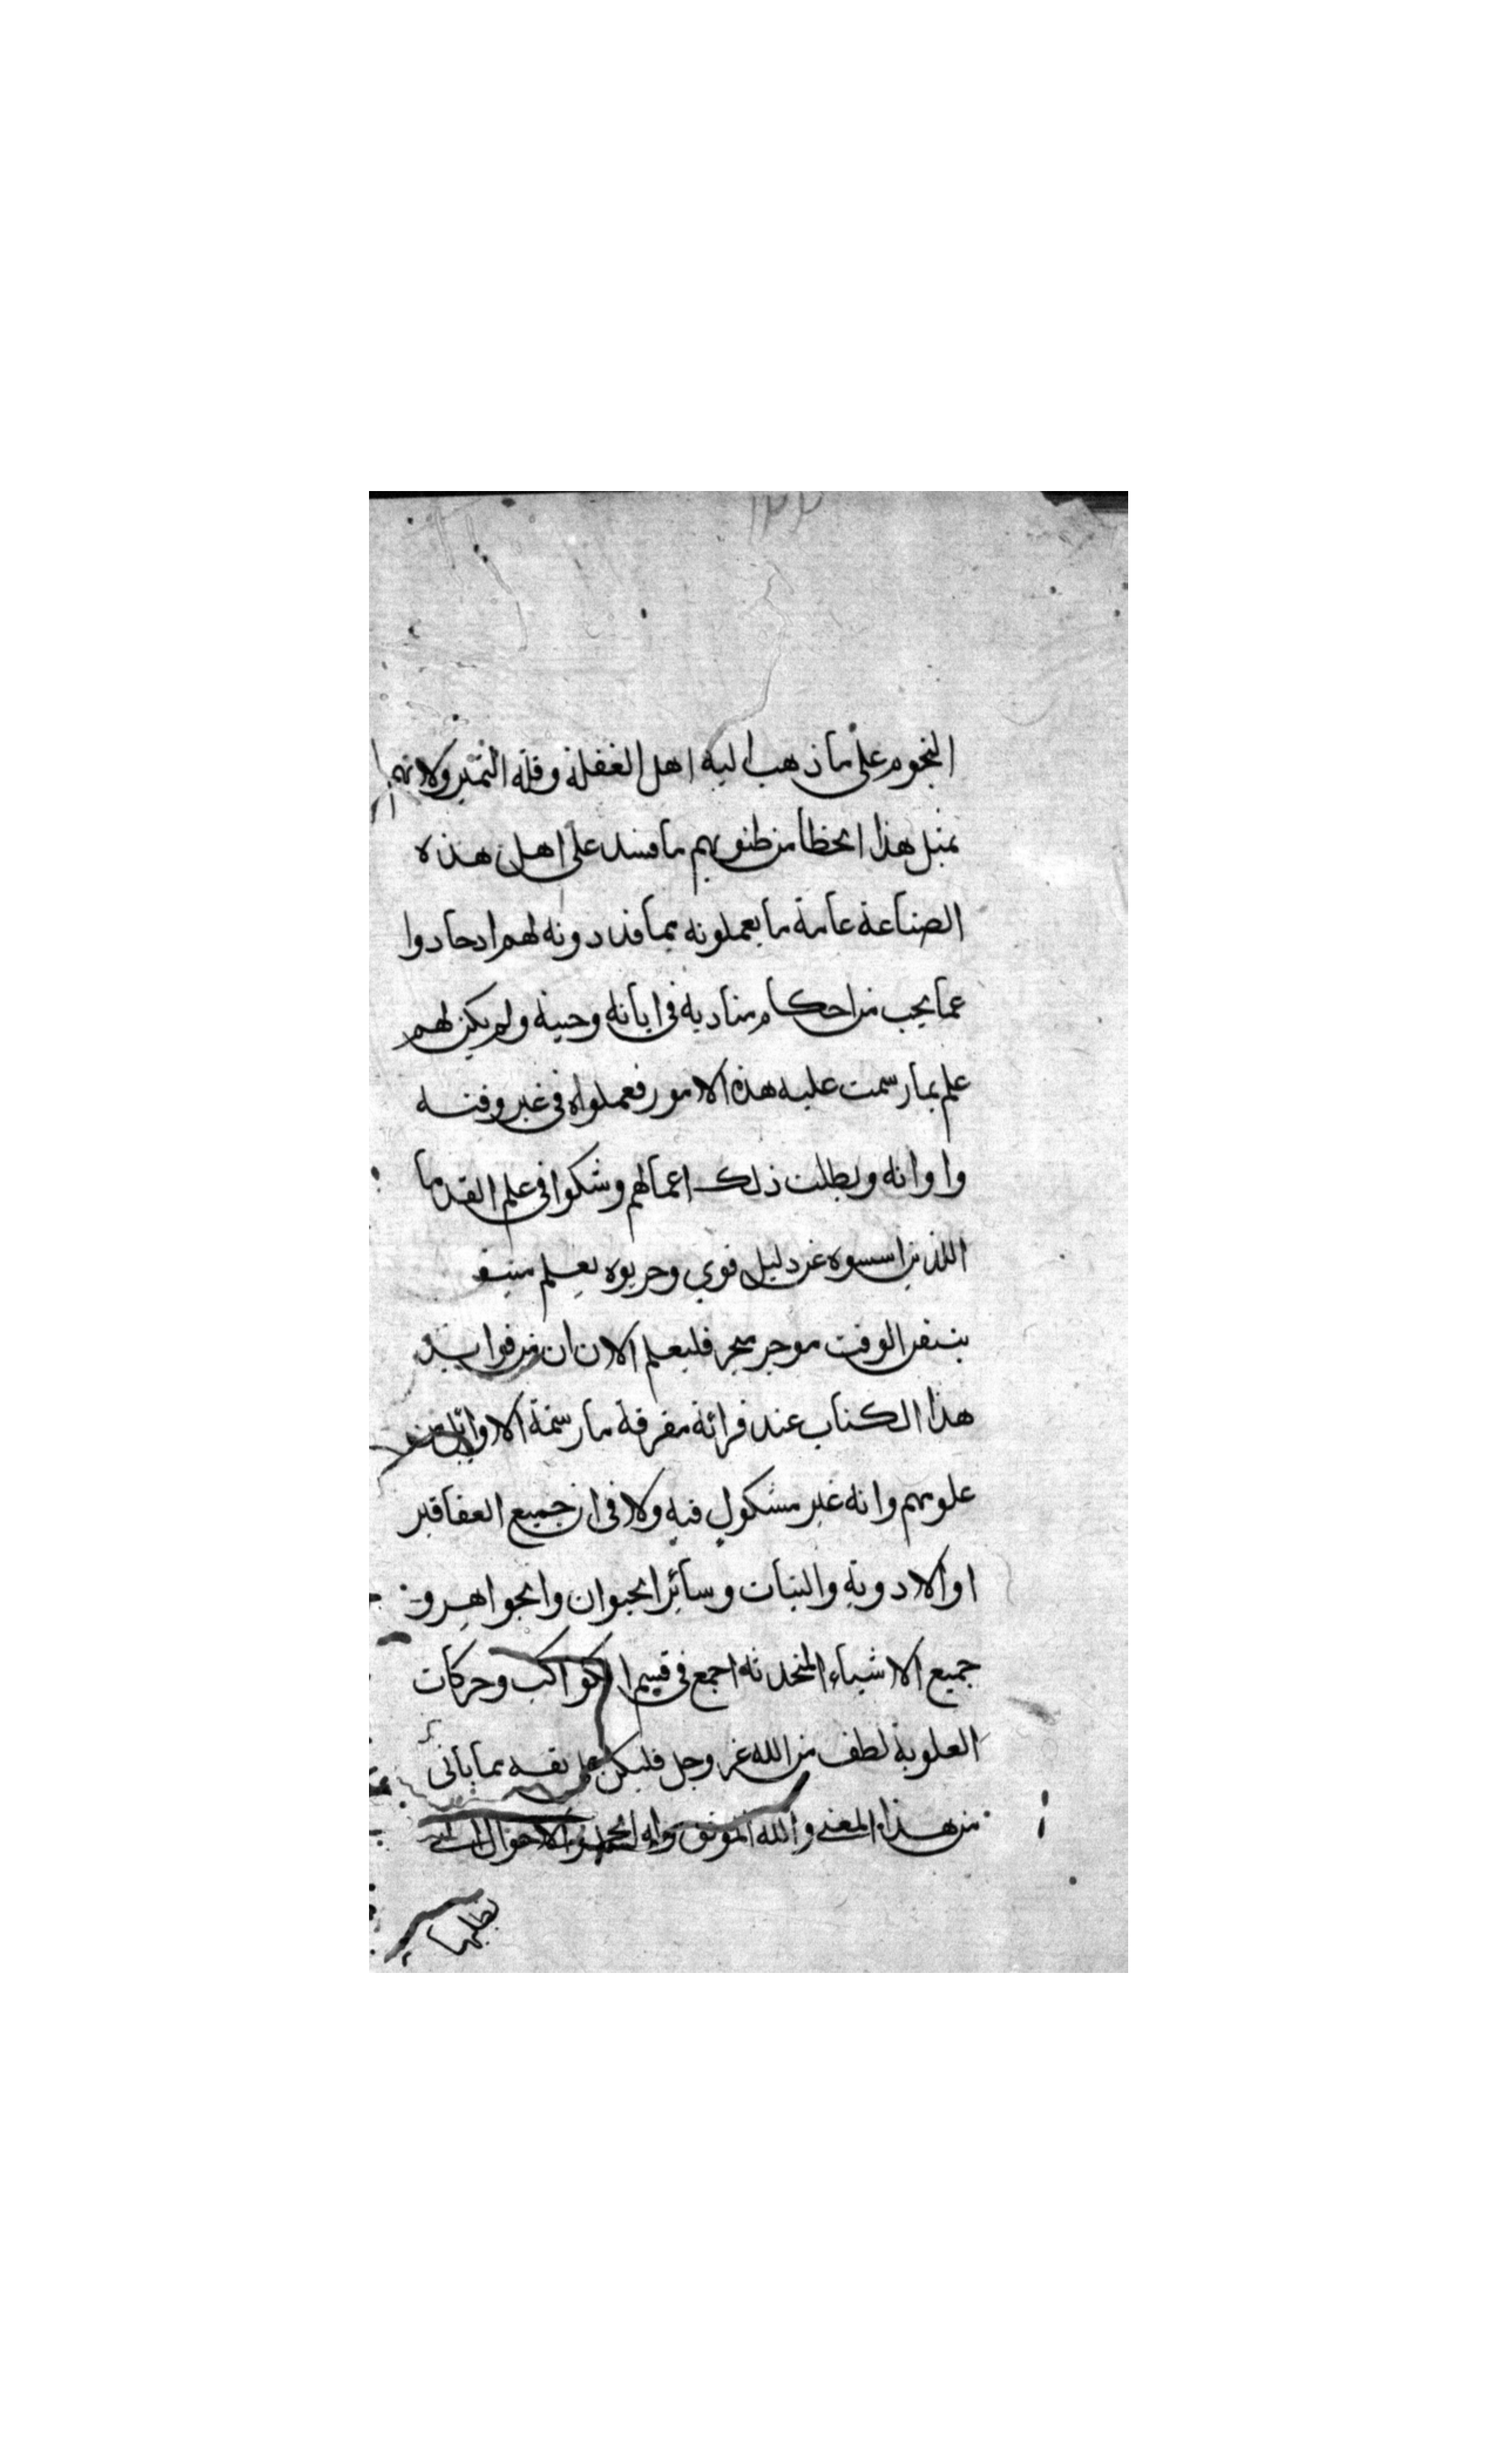 ١٢٢
النجوم على ما ذهب اليه اهل الغفلة وقلة التميز ولانهم
بمثل هذا الخطا من ظنونهم ما فسد على اهل هذه
الصناعة عامة ما يعملونه بما قد دونه لهم اذ حادوا
عما يجب من احكام مناديه في ابانه وحينه ولم يكن لهم
علم بما رسمت عليه هذه الامور فعملواه في غير وقته
واوانه وبطلت ذلك اعمالهم وشكوا في علم القدما
اللذين اسسوه عن دليل قوي وجربوه بعلم
الوقت فليعلم الان ان من فوايد
هذا الكتاب عند قرائة معرفة ما رسمة الاوايل من
علومهم وانه غير مشكوك فيه ولا في ان جميع العقاقير
او الادوية والنبات وسائر الحيوان والجواهر و
جميع الاشياء المتحدثه اجمع في قسم الكواكب وحركات
العلوية لطف من الله عز وجل فليكن على ثقه بما ياتى
من هذا المعنى والله الموفق وله الاحوال